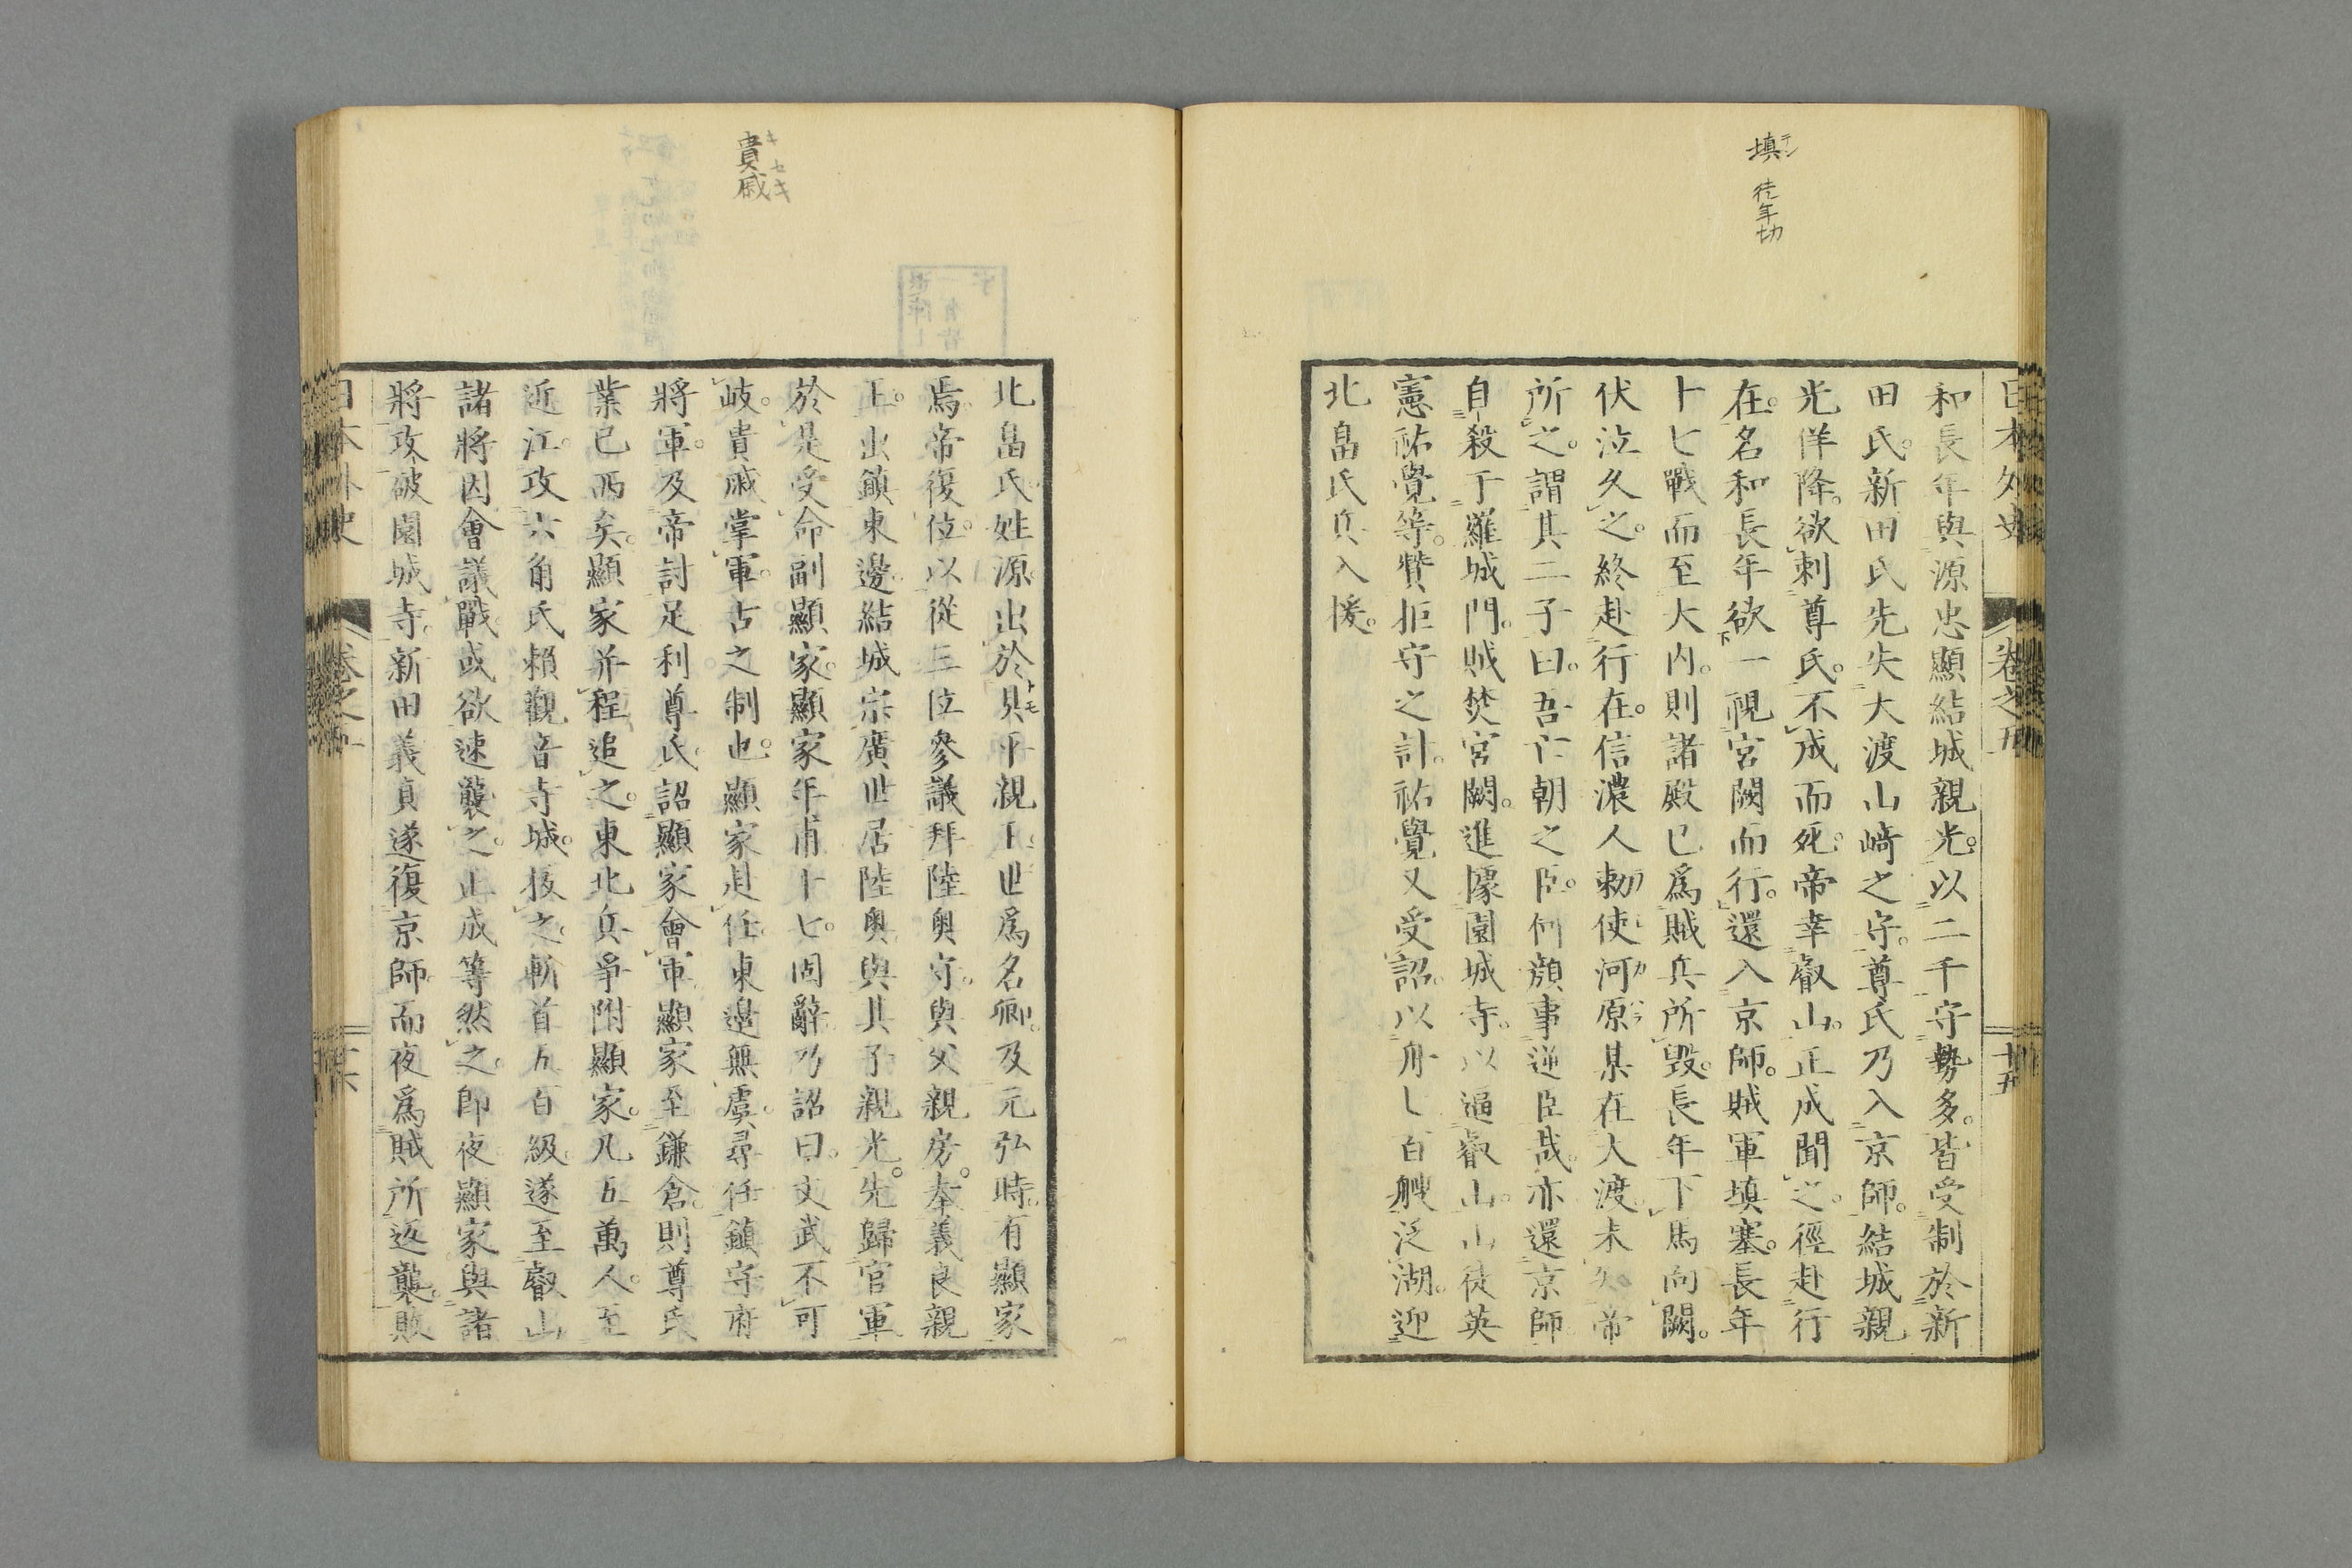 填 テン
徒年切
日本外史 卷之五 十五
和長年與源忠顯結城親光。以二千守勢多。皆受制於新
田氏。新田氏先失大渡山崎之守。尊氏乃入京師。結城親
光佯降。欲刺尊氏。不成而死。帝幸叡山。正成聞之。徑赴行
在。名和長年欲一視宮闕而行。還入京師。賊軍填塞。長年
十七戰而至大内。則諸殿已爲賊兵所毀。長年下馬向闕。
伏泣久之。終赴行在。信濃人勅使河原某在大渡未知帝
所之。謂其二子曰。吾亡朝之臣。何顔事逆臣哉。亦還京師
自殺于羅城門。賊焚宮闕。進據園城寺。以逼叡山。山徒英
憲祐覺等。贊拒守之計。祐覺又受詔。以舟七百艘泛湖。迎
北畠氏兵入援。
貴戚 キセキ
北畠氏姓源。出於具平親王。世爲名卿。及元弘時。有顯家
焉。帝復位。以從三位參議拜陸奧守。與父親房。奉義良親
王。出鎮東邊。結城宗廣世居陸奧。與其子親光。先歸官軍
於是受命副顯家。顯家年甫十七。固辭。乃詔曰。文武不可
岐。貴戚掌軍。古之制也。顯家赴任。東邊無虞。尋任鎮守府
將軍。及帝討足利尊氏。詔顯家會軍。顯家至鎌倉。則尊氏
業已西矣。顯家并程追之。東北兵爭附顯家。凡五萬人。至
近江。攻六角氏頼觀音寺城。拔之。斬首五百級。遂至叡山
諸將因會議戰。或欲速襲之。正成等然之。即夜顯家與諸
將攻破園城寺。新田義貞遂復京師。而夜爲賊所返襲。敗
日本外史 卷之五 十六